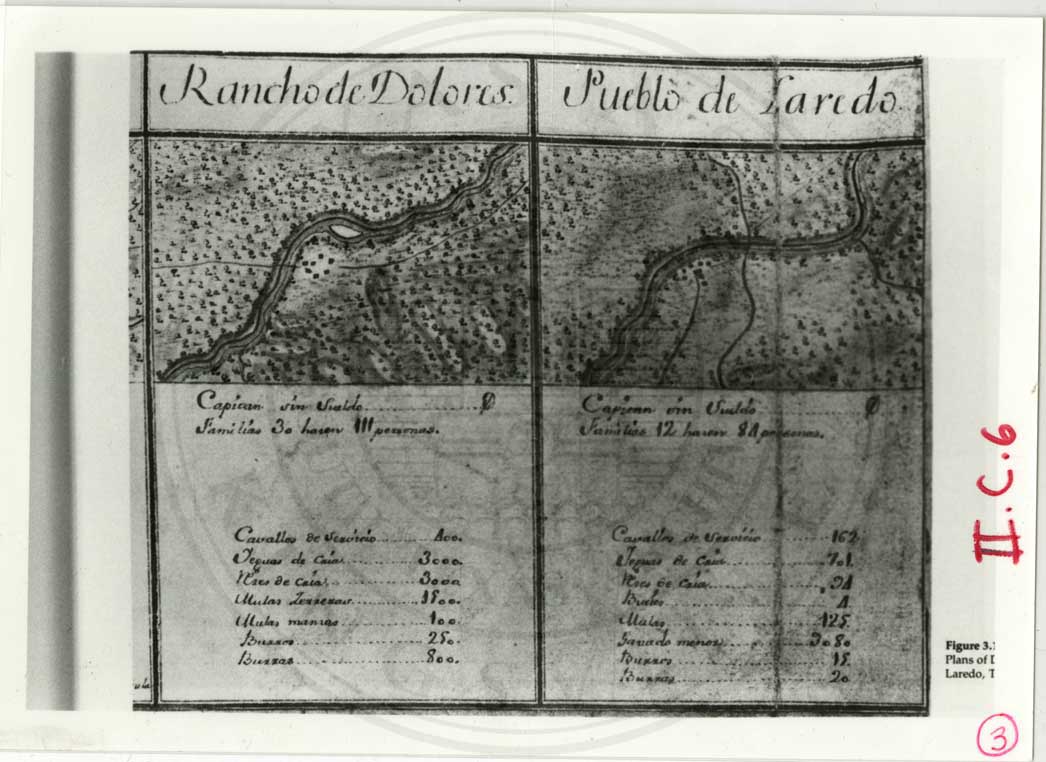 Rancho de Dolores.
Capitan sin Sueldo ............ 0
Familias 30 hacen 111 personas.
Cavallos de Servicio ......... 400.
Yeguas de Cria ............ 3000.
Rˢes de Cria ............ 3000
Mulas Zerreras ............ 1500.
Mulas mansas ............ 100.
Burros ............ 250.
Burras ............ 800.
Pueblo de Laredo.
Capitan sin Sueldo ............ 0
Familias 12 hacen 84 personas.
Cavallos de Servicio ...... 162
Yeguas de Cria ............ 701
Rˢes de Cria ............ 91
4
Mulas ............ 125.
Ganado menor ............ 3080
Burros ............ 15.
Burras ............ 20
II.C.6
Figure 3.
Plans of
Laredo, T
3